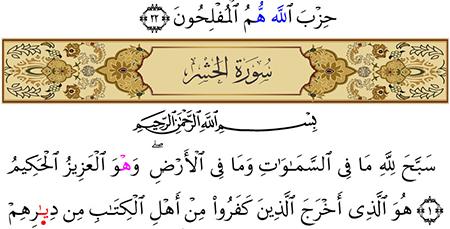 حِزْبَ ٱللَّهِ هُمُ ٱلْمُفْلِحُونَ ﴿٢٢﴾
سُورَةُ الحَشْر
بِسْمِ ٱللَّهِ ٱلرَّحْمَٰنِ ٱلرَّحِيمِ
سَبَّحَ لِلَّهِ مَا فِى ٱلسَّمَٰوَٰتِ وَمَا فِى ٱلْأَرْضِ ۖ وَهْوَ ٱلْعَزِيزُ ٱلْحَكِيمُ
﴿١﴾ هُوَ ٱلَّذِى أَخْرَجَ ٱلَّذِينَ كَفَرُوا۟ مِنْ أَهْلِ ٱلْكِتَٰبِ مِن دِيَٰرِهِمْ